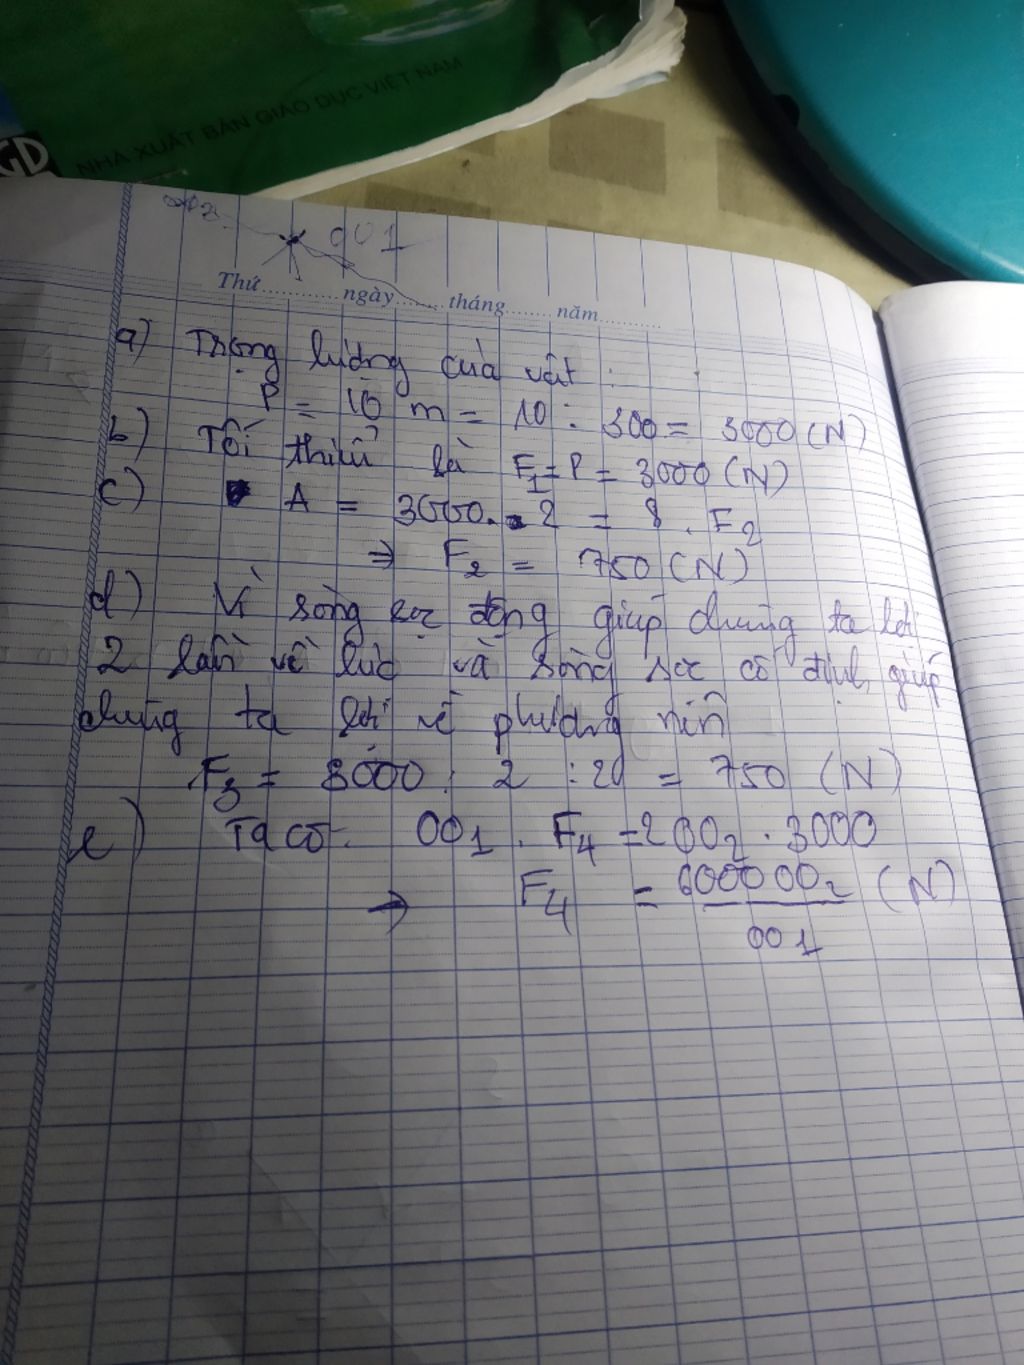 GD
NHÀ XUẤT BẢN GIÁO DỤC VIỆT NAM
001
Thứ............ngày.........tháng........năm...........
a) Trọng lượng của vật :
P = 10 m = 10 . 300 = 3000 (N)
b) Tối thiểu là F1 = P = 3000 (N)
c) A = 3000 . 2 = 8 . F2
⇒ F2 = 750 (N)
d) Vì ròng rọc động giúp chúng ta lợi
2 lần về lực và ròng rọc cố định giúp
chúng ta lợi về phương nên
F3 = 3000 : 2 : 20 = 750 (N)
e) Ta có: OO1 . F4 = 2 OO2 . 3000
→ F4 = 6000 OO2 / OO1 (N)